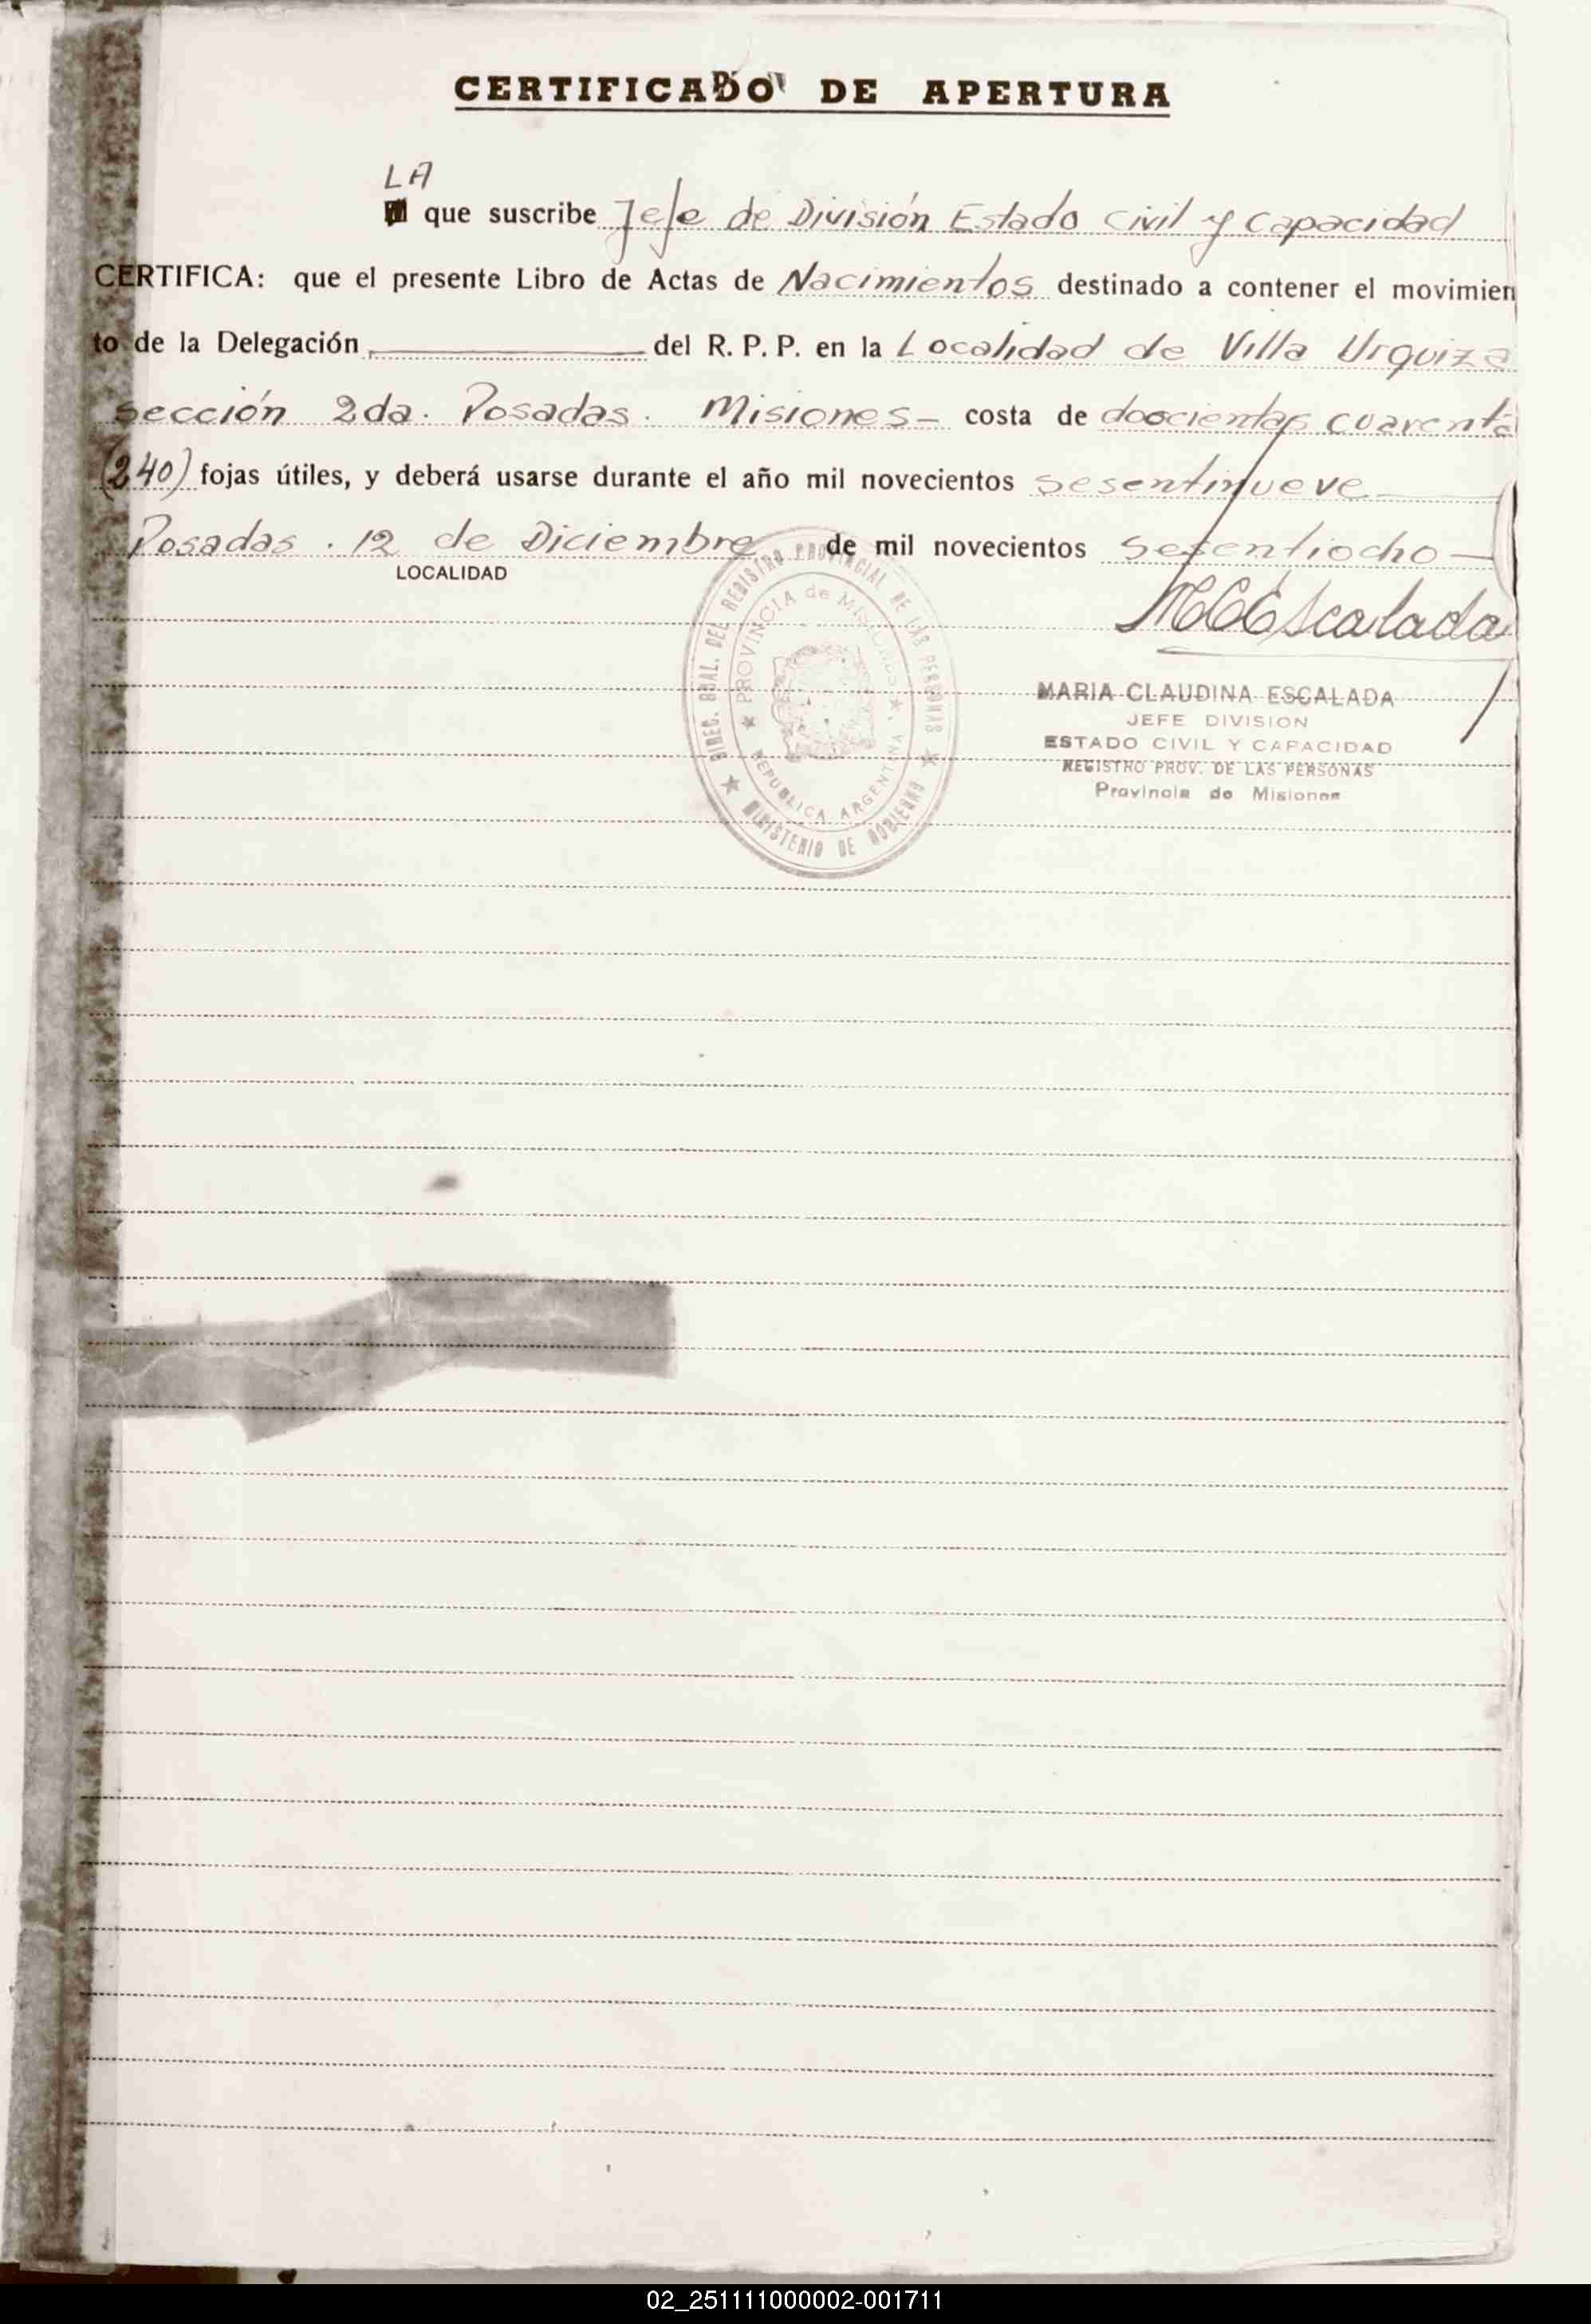 CERTIFICADO DE APERTURA
LA
que suscribe Jefe de División Estado Civil y Capacidad
CERTIFICA: que el presente Libro de Actas de Nacimientos destinado a contener el movimien
to de la Delegación del R. P. P. en la Localidad de Villa Urquiza
sección 2da. Posadas. Misiones- costa de doscientas cuarenta
(240) fojas útiles, y deberá usarse durante el año mil novecientos sesentinueve
Posadas. 12 de Diciembre de mil novecientos sesentiocho
LOCALIDAD
DIREC. GRAL. DEL REGISTRO PROVINCIAL DE LAS PERSONAS
PROVINCIA de MISIONES
REPUBLICA ARGENTINA
MINISTERIO DE GOBIERNO
MCEscalada
MARIA CLAUDINA ESCALADA
JEFE DIVISION
ESTADO CIVIL Y CAPACIDAD
REGISTRO PROV. DE LAS PERSONAS
Provincia de Misiones
02_251111000002-001711